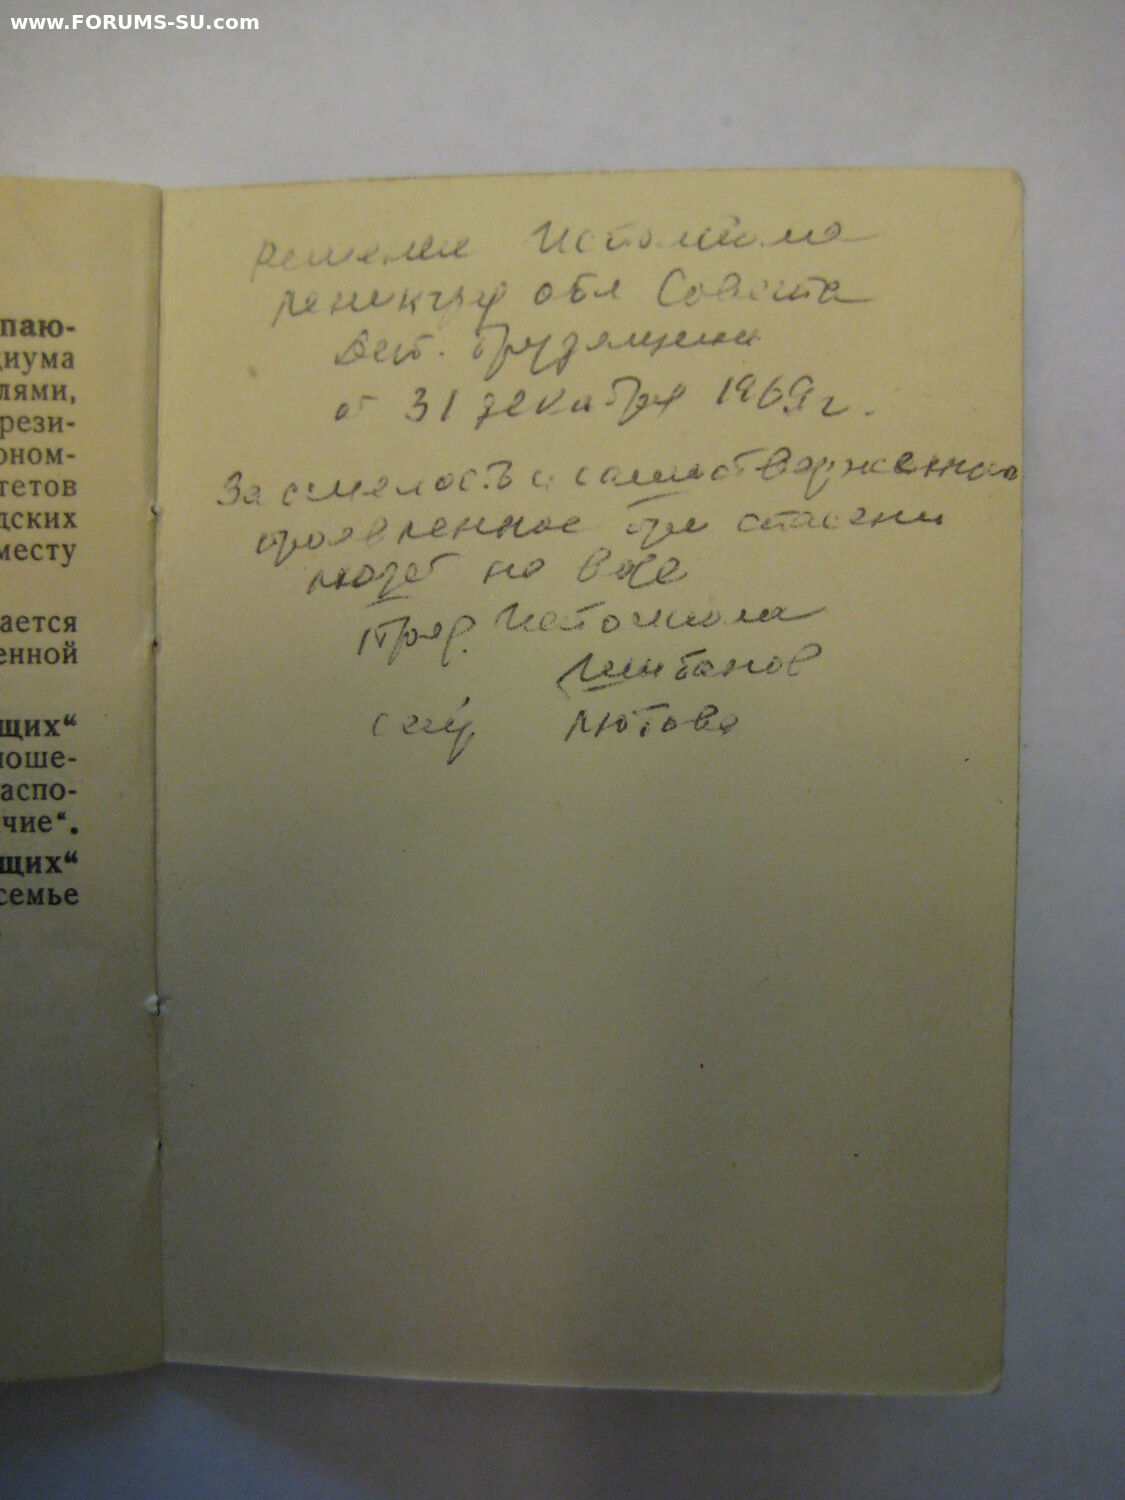 www.FORUMS-SU.com
паю-
диума
лями,
рези-
оном-
тетов
дских
месту
ается
енной
щих“
ноше-
аспо-
чие“.
щих“
семье
Решение Исполкома
обл Совета
деп. трудящихся
от 31 декабря 1969 г.
За смелость и самоотверженност
проявленное при спасени
людей на воде
Пред. Исполкома
Шибанов
секр Лютова